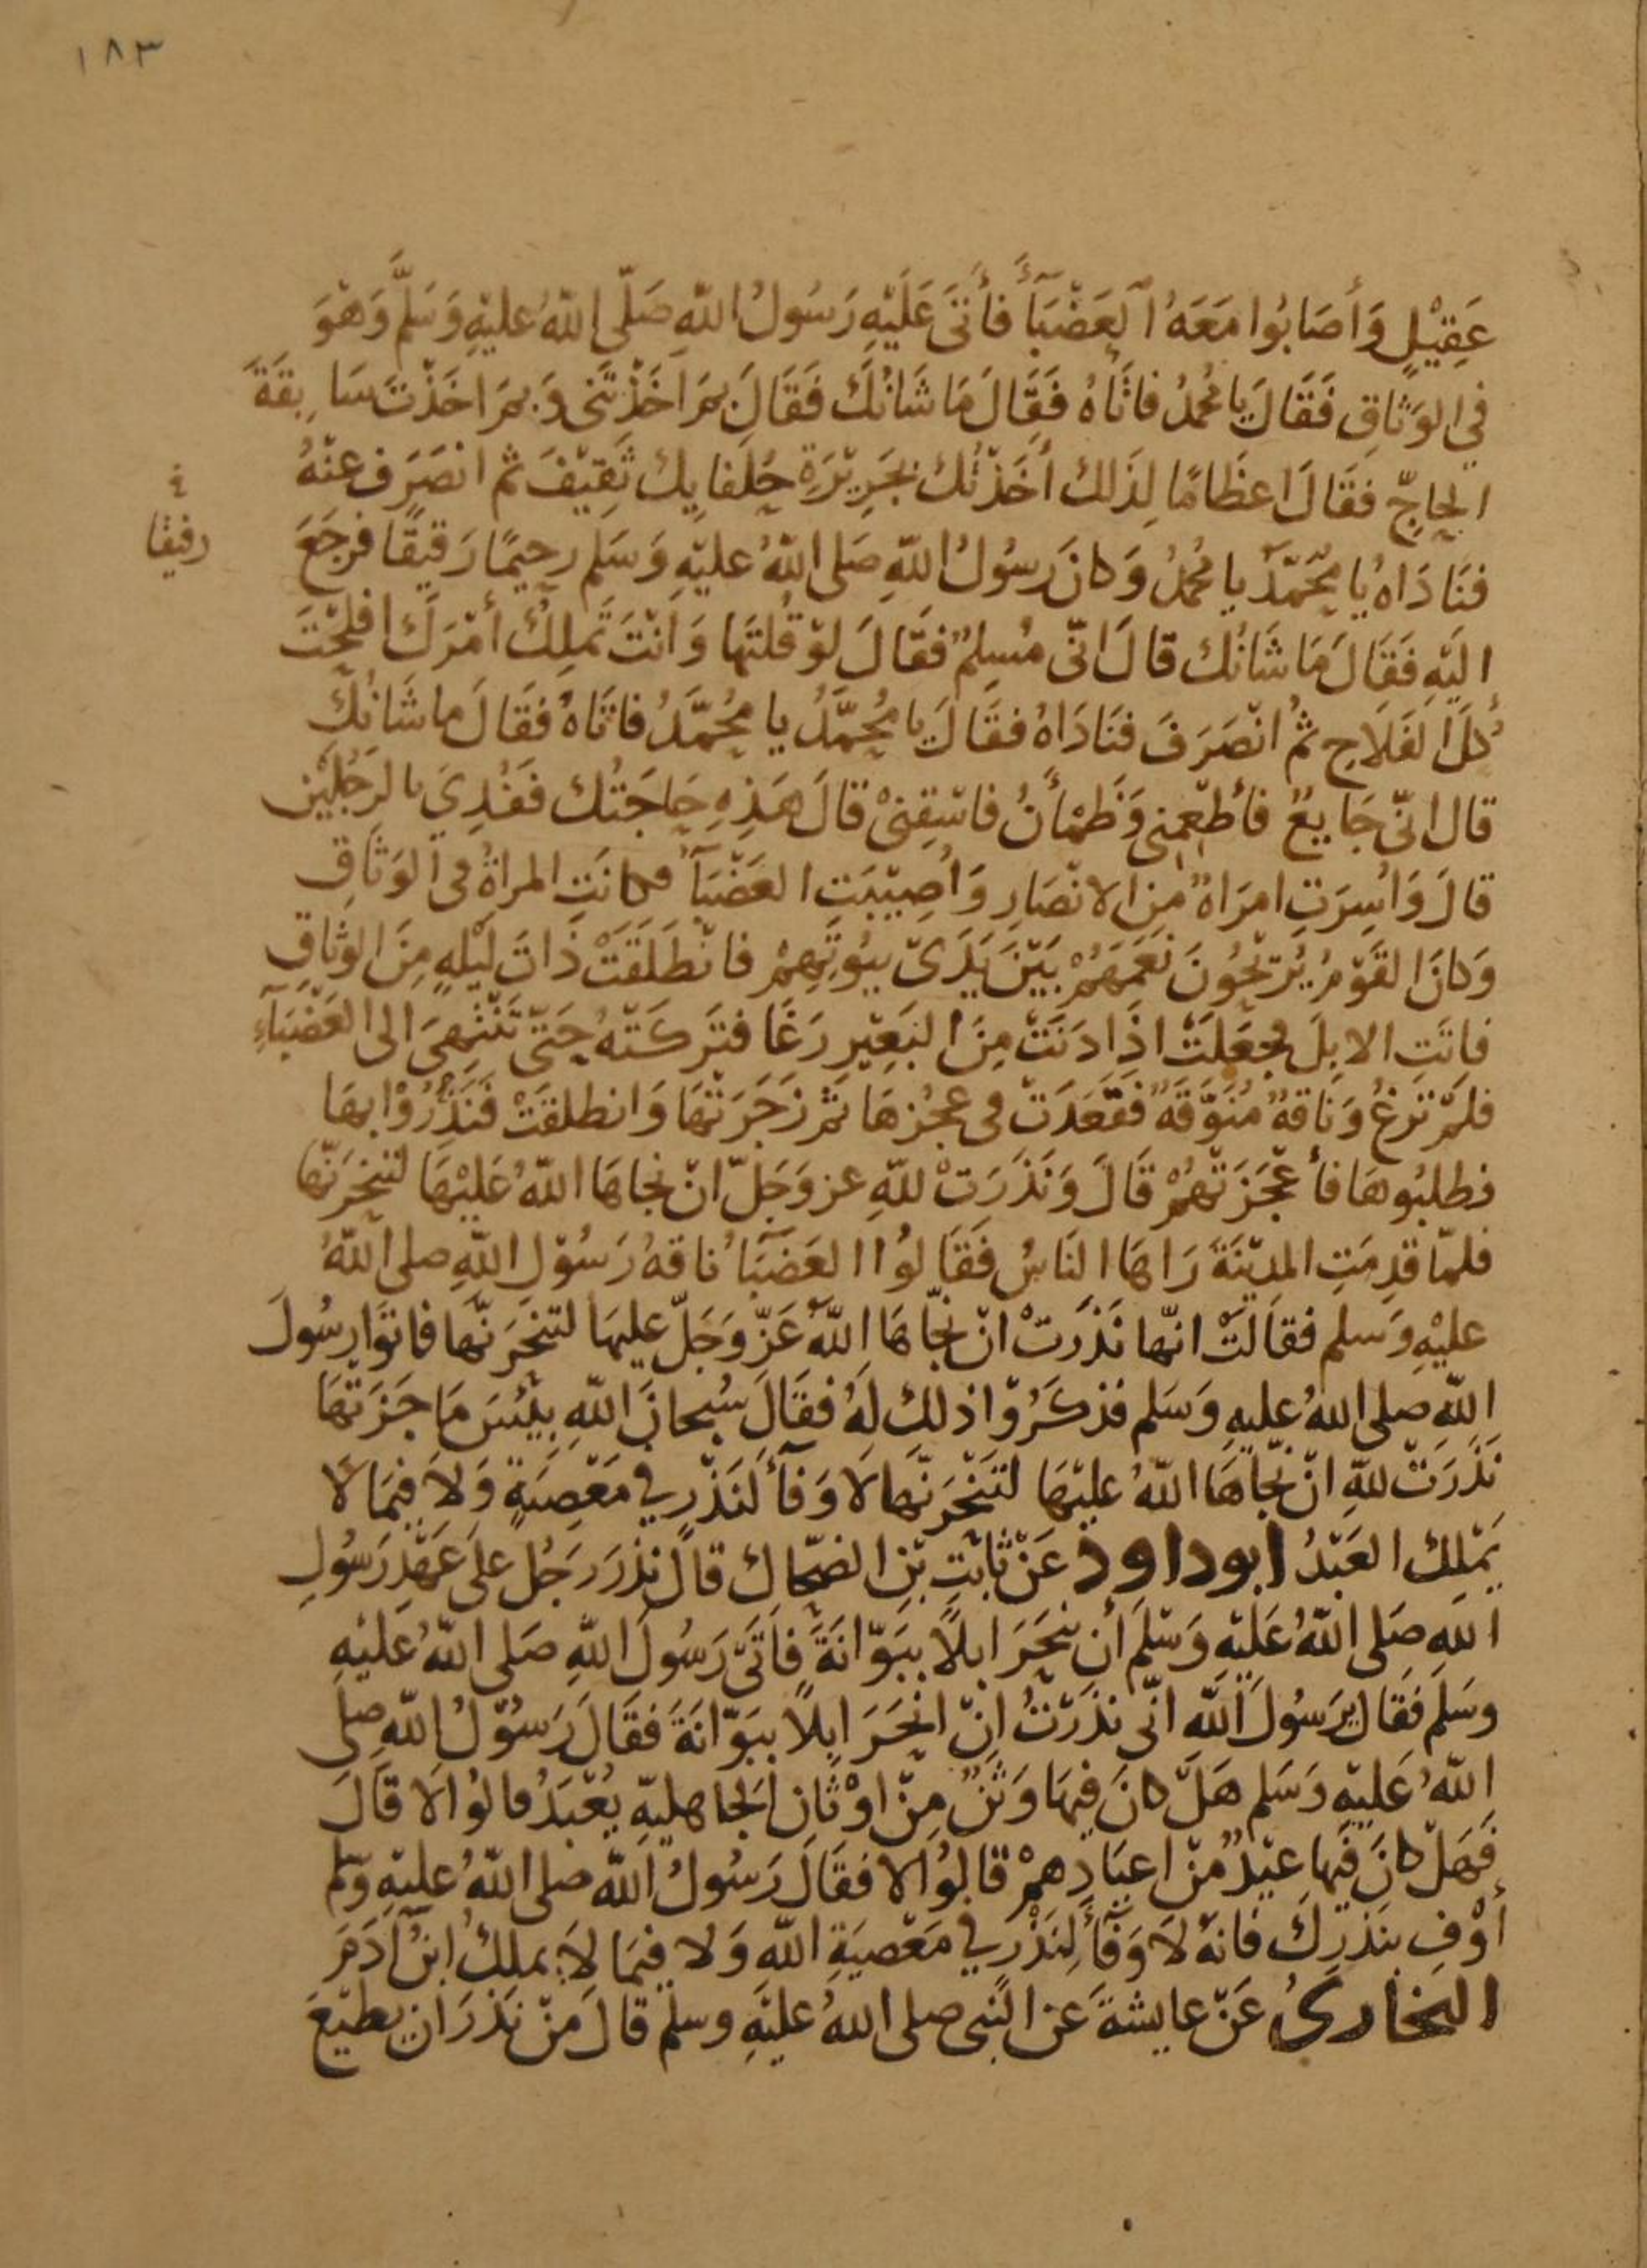 ١٨٣
عَقِيْلٍ وَأَصَابُوا مَعَهُ العَضْبَآءَ فَأَتَى عَلَيْهِ رَسُولُ اللّهِ صَلّى اللّهُ عليْهِ وَسَلَّم وَهْوَ
في الوَثَاقِ فَقَالَ يا مُحمدُ فاتَاهُ فَقَالَ مَا شَانُكَ فَقَالَ بِمَ اخَذْتَنِى وَبِمَ اخَذْتَ سَابِقَةَ
الحاجِّ فقَالَ اعظَامًا لِذَلك أَخَذْتُك بجَرِيْرَةِ حُلَفايِك ثَقِيْفَ ثم انصَرَف عنْهُ
فنَادَاهُ يا مُحَمَّدُ يا مُحمدُ وَكانَ رَسُولُ اللّهِ صَلى اللّهُ عليْهِ وَسَلم رحِيمًا رَقيقًا فرجَعَ
رفيقا
اليَهِ فَقَالَ مَا شَانُك قالَ انّى مُسلِمٌ فقَالَ لوْ قُلتَهَا وَانْتَ تَملِكُ أمْرَكَ افلحْتَ
كُلَ الفَلَاحِ ثمُ انْصَرَفَ فنَادَاهُ فقَالَ يا مُحَمَّدُ يا مُحَمَّدُ فاتَاهُ فقَالَ ما شَانُكَ
قال انّى جَايِعٌ فأطعِمنِى وَظَمْأنُ فاسْقِنىْ قالَ هَذِهِ حَاجَتُك ففُدِيَ بالرَجُلَيْنِ
قالَ وَاُسِرَتِ امرَاةٌ مِنِ الانْصَارِ وَأُصِيْبَتِ العَضْبَآُ فكانَتِ المراةُ فى الوَثَاقِ
وَكانَ القَوْمُ يُرِيْحُونَ نَعَمَهُمْ بَيْنَ يَدَىْ بيُوتِهِمْ فانْطَلَقَتْ ذَاتَ لَيْلهٍ مِنَ الوثَاقِ
فاتَتِ الابِلَ فجعَلَتْ اذَا دَنَتْ مِنَ البَعِيْرِ رَغَا فتَرَكَتْهُ حَتىّ تَنْتَهِىَ الى العَضْبَآءِ
فلمْ تَرغُ وَناقةٌ مُنَوَّقَةٌ فقَعَدَتْ فى عجُزِهَا ثمّ زَجَرَتْهَا وَانطلقَتْ فَنَذِرُوْا بِهَا
فطلبُوهَا فأعْجَزَتْهُمْ قَالَ وَنَذَرَتْ للّهِ عز وَجَلّ انْ نجاهَا اللّهُ عَلَيْهَا لتَنحَرَنّها
فلمّا قدِمَتِ المدِيْنَةَ رَاهَا النَاسُ فَقَالوُا العَضْبَاُ ناقةُ رَسُوْلِ اللّهِ صلى اللّهُ
عليْهِ وَسلم فقَالَتْ انّها نَذَرَتْ انْ نجَّاهَا اللّهُ عَزّ وَجَلّ عليهَا لتنحَرَنّهَا فاتوَا رسُولَ
اللّهِ صلى اللهُ عليهِ وَسَلم فذكَرُوْا ذلك لَهُ فقَالَ سُبحانَ اللّهِ بِئسَ مَا جَزَتْهَا
نَذَرَتْ للّهِ انْ نجّاهَا اللّهُ عليْهَا لتَنْحَرَنّهَا لاَ وَفآَ لنَذْرٍ في مَعْصِيَةٍ وَلاَ فيمَا لاَ
يَمْلِكُ العَبْدُ ابوداود عَنْ ثابتِ بْنِ الضحّاك قالَ نَذرَ رَجُل علَى عَهْدِ رَسُولِ
اللهِ صَلى اللّهُ عَلَيْهِ وَسلَم أن يَنْحَرَ ابلًا بِبَوّانَةَ فأتَى رَسُولَ اللّهِ صَلى اللّهُ عَليْهِ
وسَلم فَقَال يرَسُولَ اللّهِ انّى نذَرْتُ انْ انْحَرَ ابِلاً بِبَوّانَةَ فقَالَ رَسُوْلُ اللّهِ صلى
اللّهُ عَليْهِ وَسَلم هَلْ كانَ فيهَا وَثَنٌ مِنْ اوْثَانِ الجَاهليّهِ يُعْبَدُ قالوُا لَا قَالَ
فَهَلْ كانَ فيها عيْدٌ مّنْ اعيَادِهِمْ قالوُا لا فقَالَ رَسُولُ اللّهِ صلى اللّهُ عليْهِ وسلم
أوْفِ بنَذرِكَ فانهُ لاَ وَفآَ لِنَذْرٍ في مَعْصيَةِ اللّهِ وَلا فيمَا لاَ يملِكُ ابنُ آدَمَ
البخارىُ عَنْ عايشةَ عَن النّبى صلى اللهُ عليْهِ وسلم قالَ مِنْ نَذَرَ ان يطيْعَ